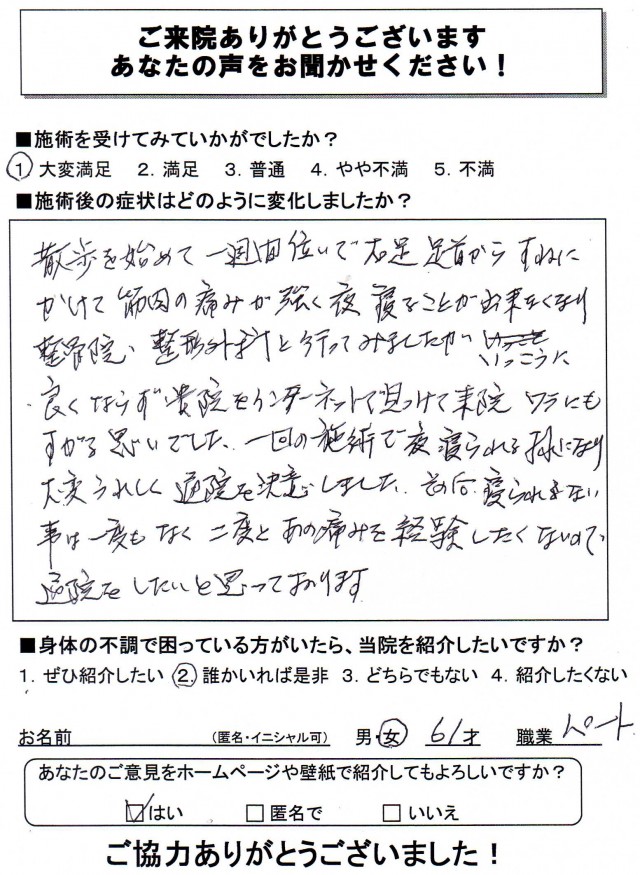 ご来院ありがとうございます
あなたの声をお聞かせください！
■施術を受けてみていかがでしたか？
1 大変満足 2. 満足 3. 普通 4. やや不満 5. 不満
■施術後の症状はどのように変化しましたか？
散歩を始めて一週間位いで右足足首からすねに
かけて筋肉の痛みが強く夜寝ることが出来なくなり
整骨院、整形外科と行ってみましたが
いっこうに
良くならず貴院をインターネットで見つけて来院 ワラにも
すがる思いでした、一回の施術で夜寝られる様になり
大変うれしく通院を決意しました、その后寝られない
事は一度もなく二度とあの痛みを経験したくないので、
通院をしたいと思っております
■身体の不調で困っている方がいたら、当院を紹介したいですか？
1. ぜひ紹介したい 2. 誰かいれば是非 3. どちらでもない 4. 紹介したくない
お名前 （匿名・イニシャル可） 男・女 61才 職業 パート
あなたのご意見をホームページや壁紙で紹介してもよろしいですか？
☑はい □匿名で □いいえ
ご協力ありがとうございました！